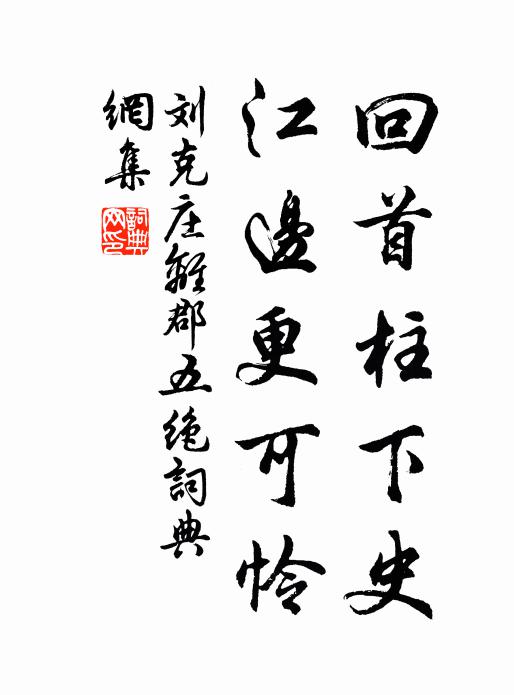 回首柱下史
江邊更可怜
刘克庄離郡五绝詞典
網集
詞典網印